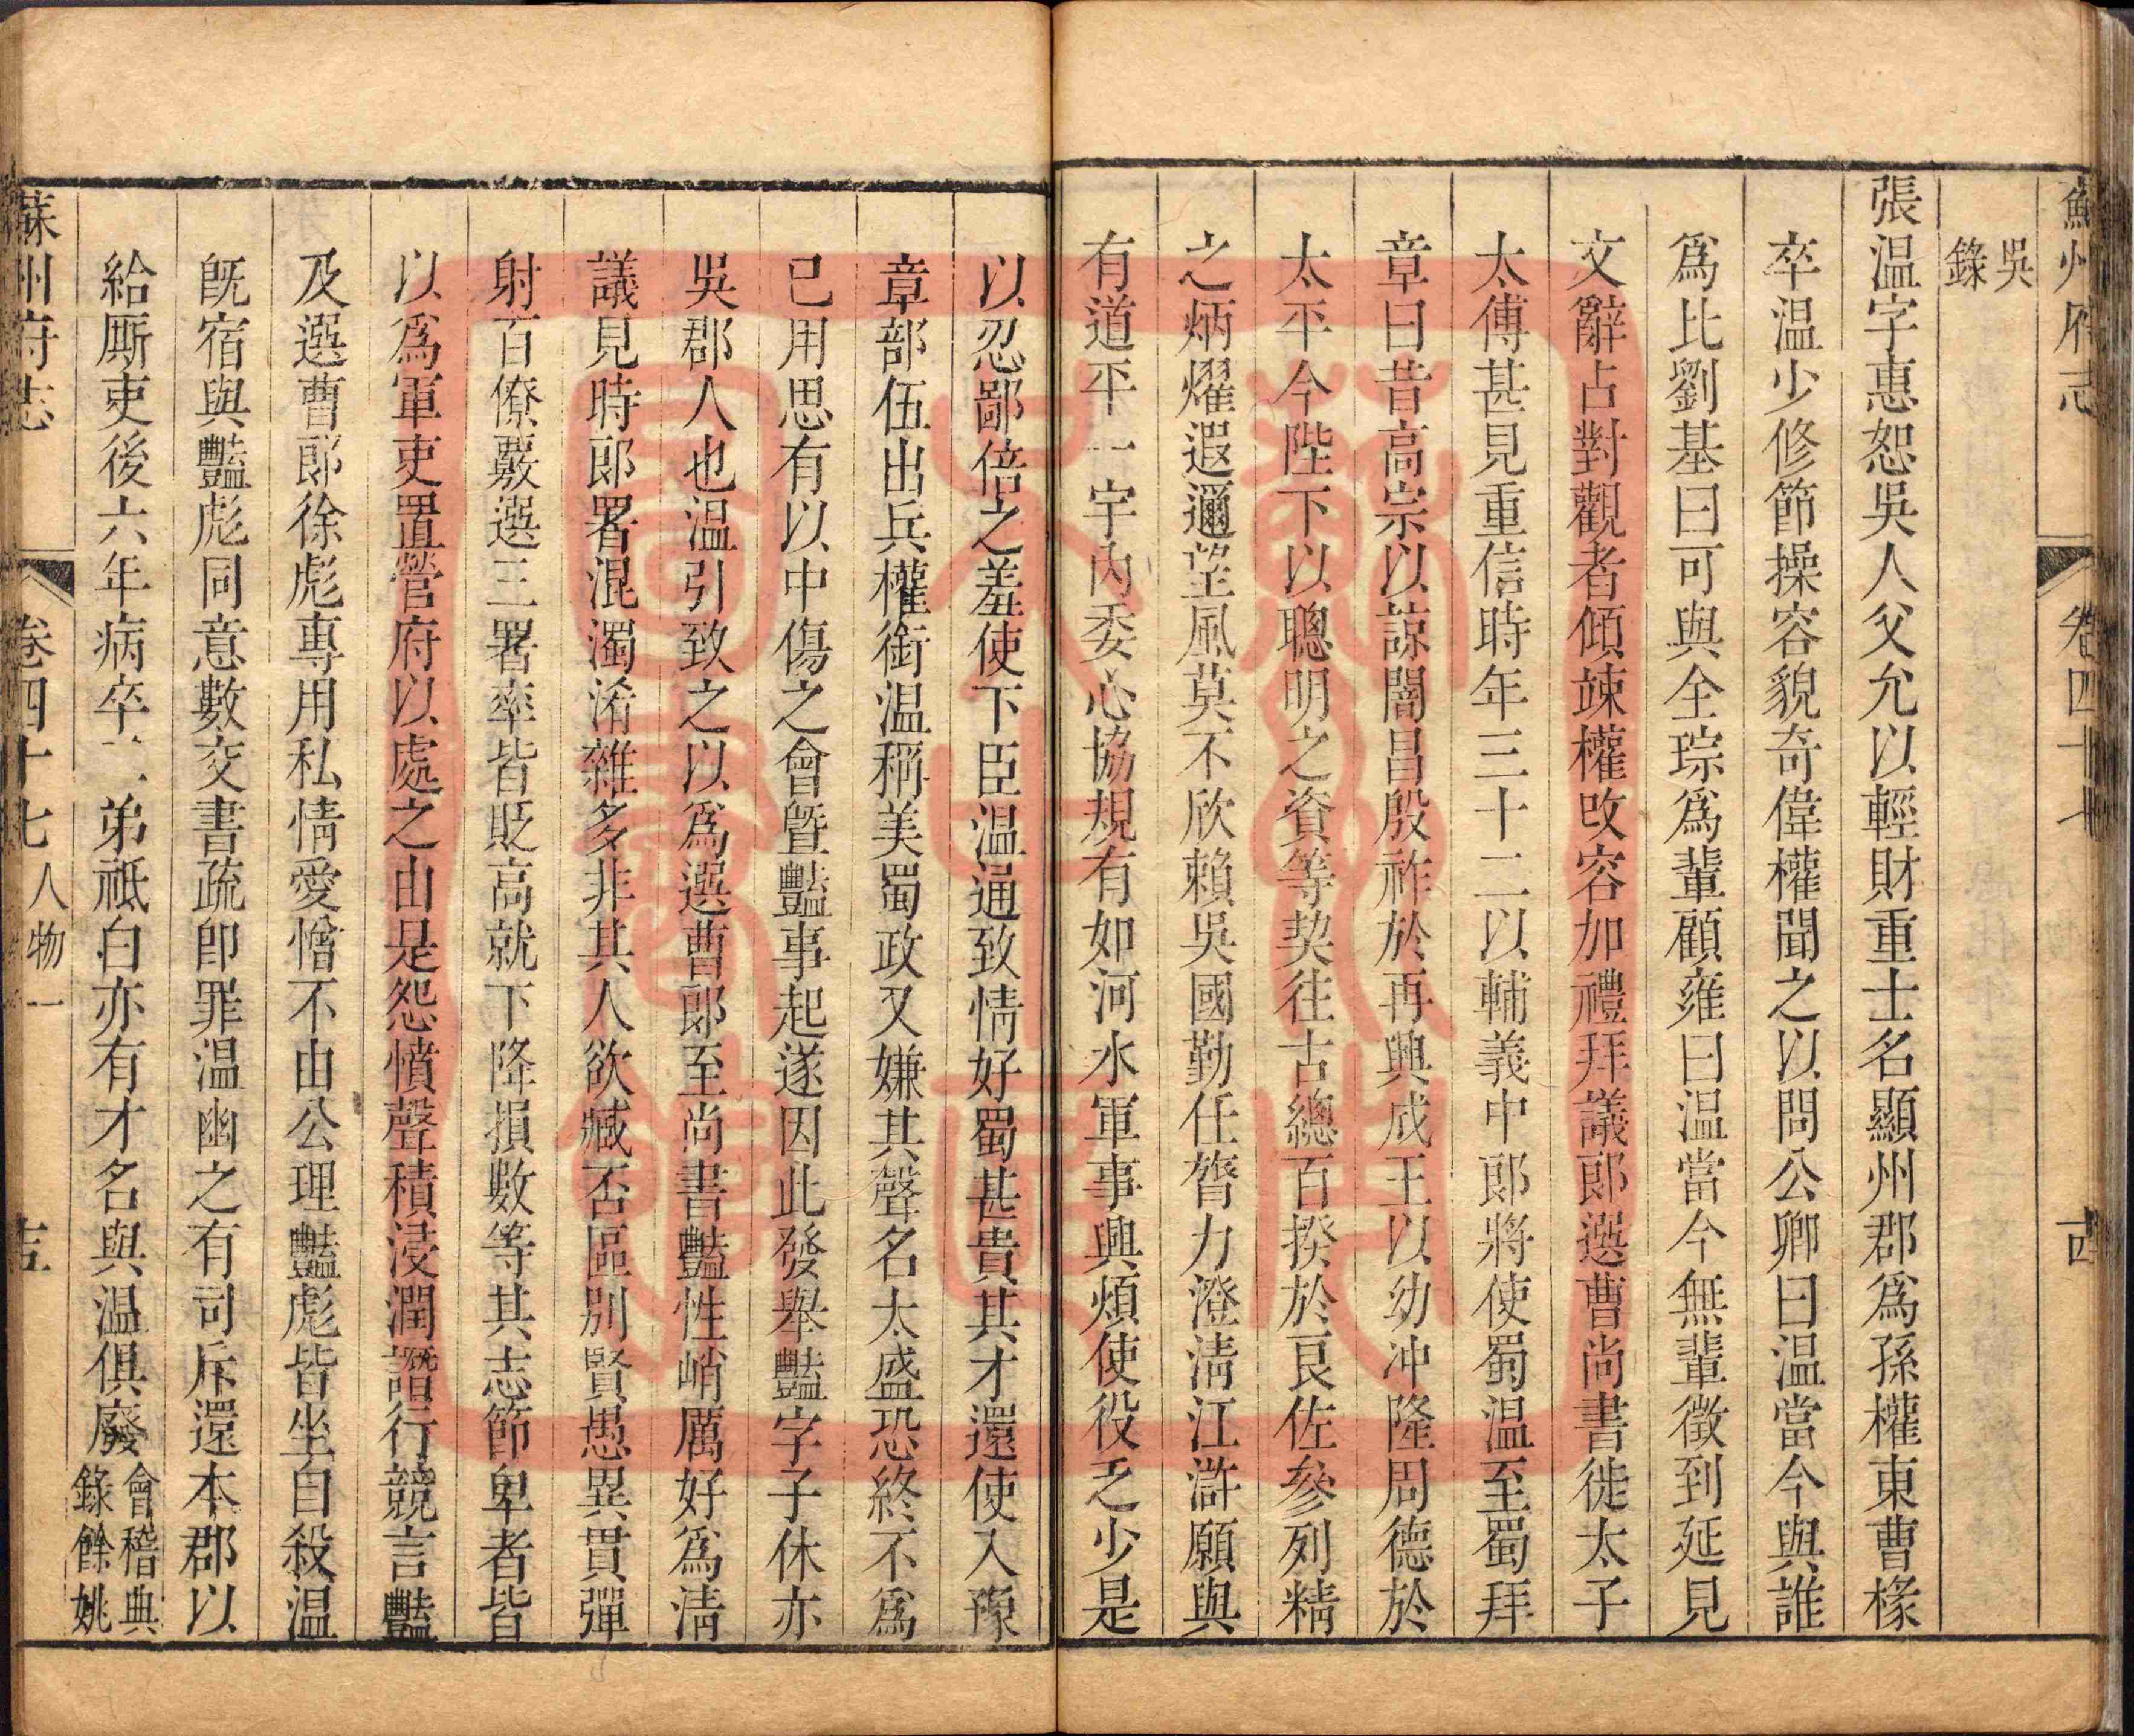 蘇州府志 卷四十七 古
吳錄
張温字惠恕吳人父允以輕財重士名顯州郡爲孫權東曹椽
卒温少修節操容貌奇偉權聞之以問公卿曰温當今與誰
爲比劉基曰可與全琮爲輩顧雍曰温當今無輩徵到延見
文辭占對觀者傾竦權改容加禮拜議郎選曹尚書徙太子
太傅甚見重信時年三十二以輔義中郎將使蜀温至蜀拜
章曰昔高宗以諒闇昌殷祚於再興成王以幼冲隆周德於
太平今陛下以聰明之資等契往古總百揆於良佐參列精
之炳燿遐邇望風莫不欣賴吳國勤任膂力澄清江滸願與
有道平一宇內委心協規有如河水軍事興煩使役乏少是
以忍鄙倍之羞使下臣温通致情好蜀甚貴其才還使入豫
章部伍出兵權銜温稱美蜀政又嫌其聲名太盛恐終不爲
己用思有以中傷之會曁豔事起遂因此發舉豔字子休亦
吳郡人也温引致之以爲選曹郎至尚書豔性峭厲好爲清
議見時郎署混濁淆雜多非其人欲臧否區別賢愚異貫彈
射百僚覈選三署率皆貶高就下降損數等其志節卑者皆
以爲軍吏置營府以處之由是怨憤聲積浸潤譖行競言豔
及選曹郎徐彪專用私情愛憎不由公理豔彪皆坐自殺温
旣宿與豔彪同意數交書疏卽罪温幽之有司斥還本郡以
給厮吏後六年病卒二弟祗白亦有才名與温俱廢會稽典錄餘姚
蘇州府志 卷四十七 人物一